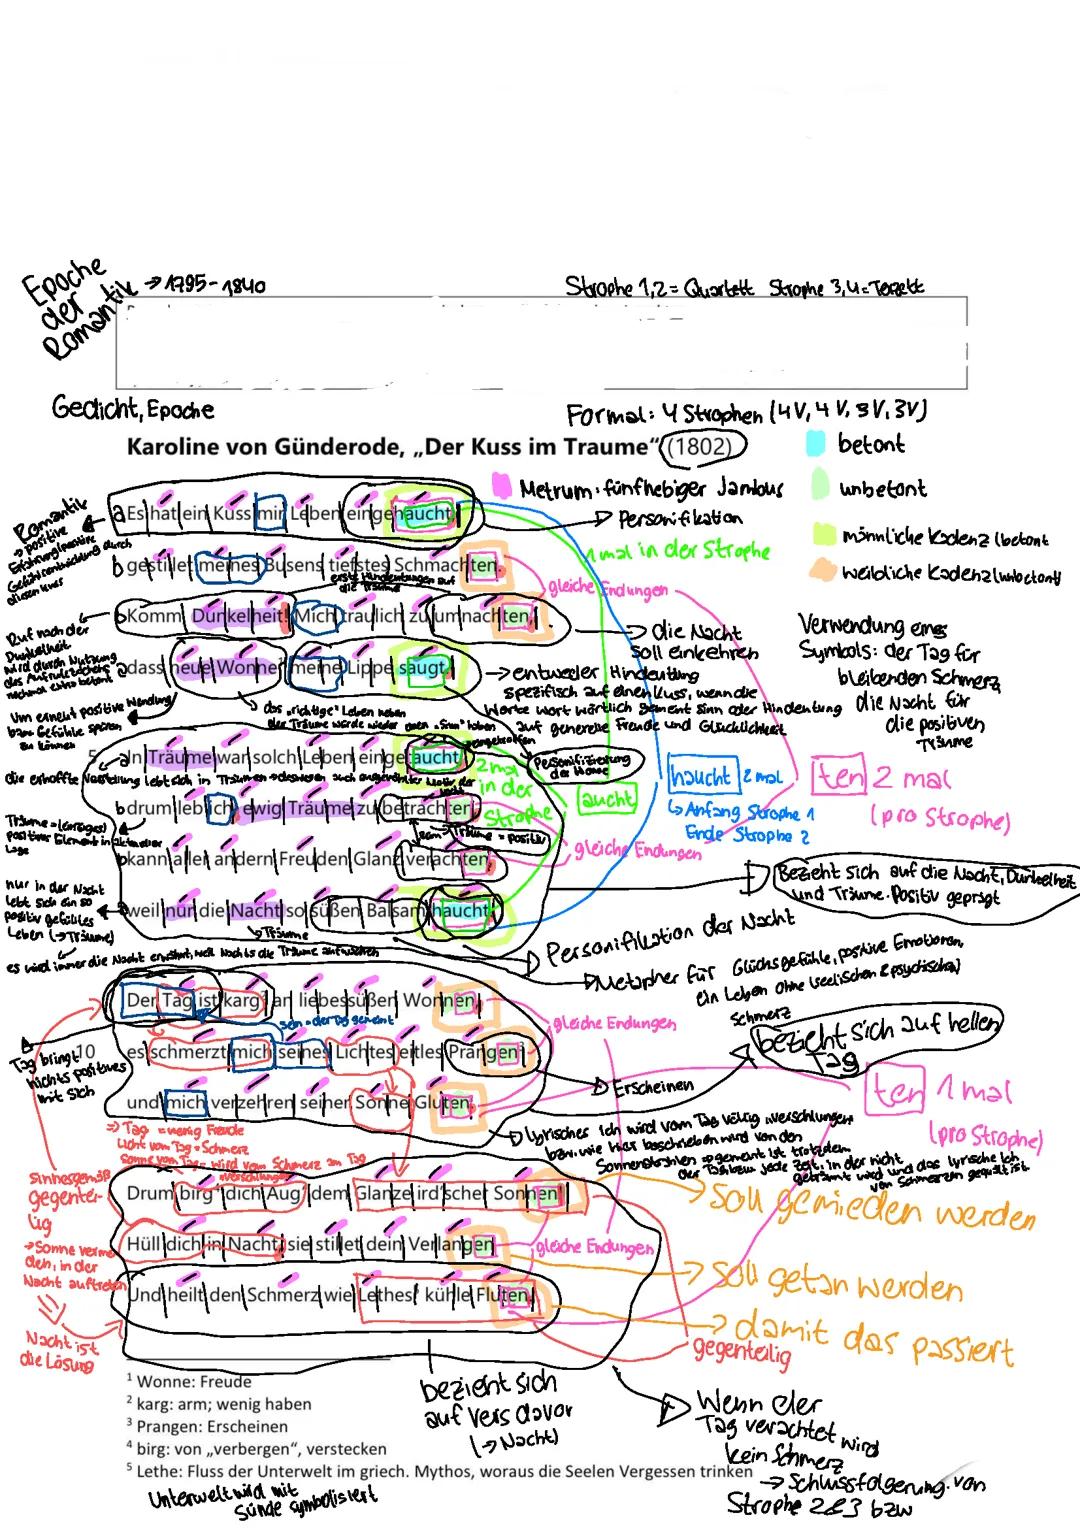 Epoche der Romantik → 1795-1840
Strophe 1,2 = Quartett Strophe 3,4 = Terzett
Gedicht, Epoche
Formal: 4 Strophen (4V, 4V, 3V, 3V)
Karoline von Günderode, „Der Kuss im Traume“ (1802)
betont
Metrum: fünfhebiger Jambus
unbetont
männliche Kadenz (betont
weibliche Kadenz (unbetont)
a Es hat ein Kuss mir Leben eingehaucht,
→ Personifikation
Romantik
→ positive
1 mal in der Strophe
b gestillet meines Busens tiefstes Schmachten.
gleiche Endungen
erste Hindeutungen auf die Träume
Komm, Dunkelheit! Mich traulich zu umnachten,
→ die Nacht soll einkehren
Ruf nach der Dunkelheit wird durch Nutzung des Ausrufezeichens nochmal extra betont
a dass neue Wonne meine Lippe saugt.
→ entweder Hindeutung spezifisch auf einen Kuss, wenn die Worte wort wörtlich gement sinn oder Hindeutung auf generelle Freude und Glücklichkeit
Verwendung eines Symbols: der Tag für bleibenden Schmerz, die Nacht für die positiven Träume
5 a In Träume war solch Leben eingetaucht,
Personifizierung der Wonne
2 mal in der Strophe
aucht
haucht 2 mal
↳ Anfang Strophe 1
Ende Strophe 2
ten 2 mal
(pro Strophe)
b drum leb' ich, ewig Träume zu betrachten,
Träume = positiv
b kann aller andern Freuden Glanz verachten,
gleiche Endungen
Bezieht sich auf die Nacht, Dunkelheit und Träume. Positiv geprägt
nur in der Nacht lebt sich ein so positiv gefülltes Leben (→ Träume)
weil nur die Nacht so süßen Balsam haucht.
↳ Träume
es wird immer die Nacht erwähnt, weil Nachts die Träume auftauchen
→ Personifikation der Nacht
→ Metapher für Glücksgefühle, positive Emotionen, ein Leben ohne (seelischen & psychischen) Schmerz
Der Tag ist karg an liebessüßen Wonnen,
sein = der Tag gement
gleiche Endungen
bezieht sich auf hellen Tag
Tag bringt nichts positives mit sich
10 es schmerzt mich seines Lichtes eitles Prangen
→ Erscheinen
und mich verzehren seiner Sonne Gluten.
ten 1 mal
(pro Strophe)
⇒ Tag = wenig Freude
Licht vom Tag = Schmerz
Sonne vom Tag = wird vom Schmerz am Tag verschlungen
→ lyrisches Ich wird vom Tag völlig „verschlungen“ bzw. wie hier beschrieben wird von den Sonnenstrahlen → gement ist trotzdem der Tag bzw. jede Zeit, in der nicht geträumt wird und das lyrische Ich von Schmerzen gequält ist.
sinnesgemäß gegenteilig
→ Sonne vermeiden, in der Nacht auftreten
Nacht ist die Lösung
Drum birg' dich Aug' dem Glanze ird'scher Sonnen!
→ soll gemieden werden
Hüll' dich in Nacht, sie stillet dein Verlangen
gleiche Endungen
→ soll getan werden
Und heilt den Schmerz, wie Lethes⁵ kühle Fluten.
→ damit das passiert
gegenteilig
bezieht sich auf Vers davor (→ Nacht)
→ Wenn der Tag verachtet wird kein Schmerz
→ Schlussfolgerung von Strophe 2&3 bzw
¹ Wonne: Freude
² karg: arm; wenig haben
³ Prangen: Erscheinen
⁴ birg: von „verbergen“, verstecken
⁵ Lethe: Fluss der Unterwelt im griech. Mythos, woraus die Seelen Vergessen trinken
Unterwelt wird mit Sünde symbolisiert